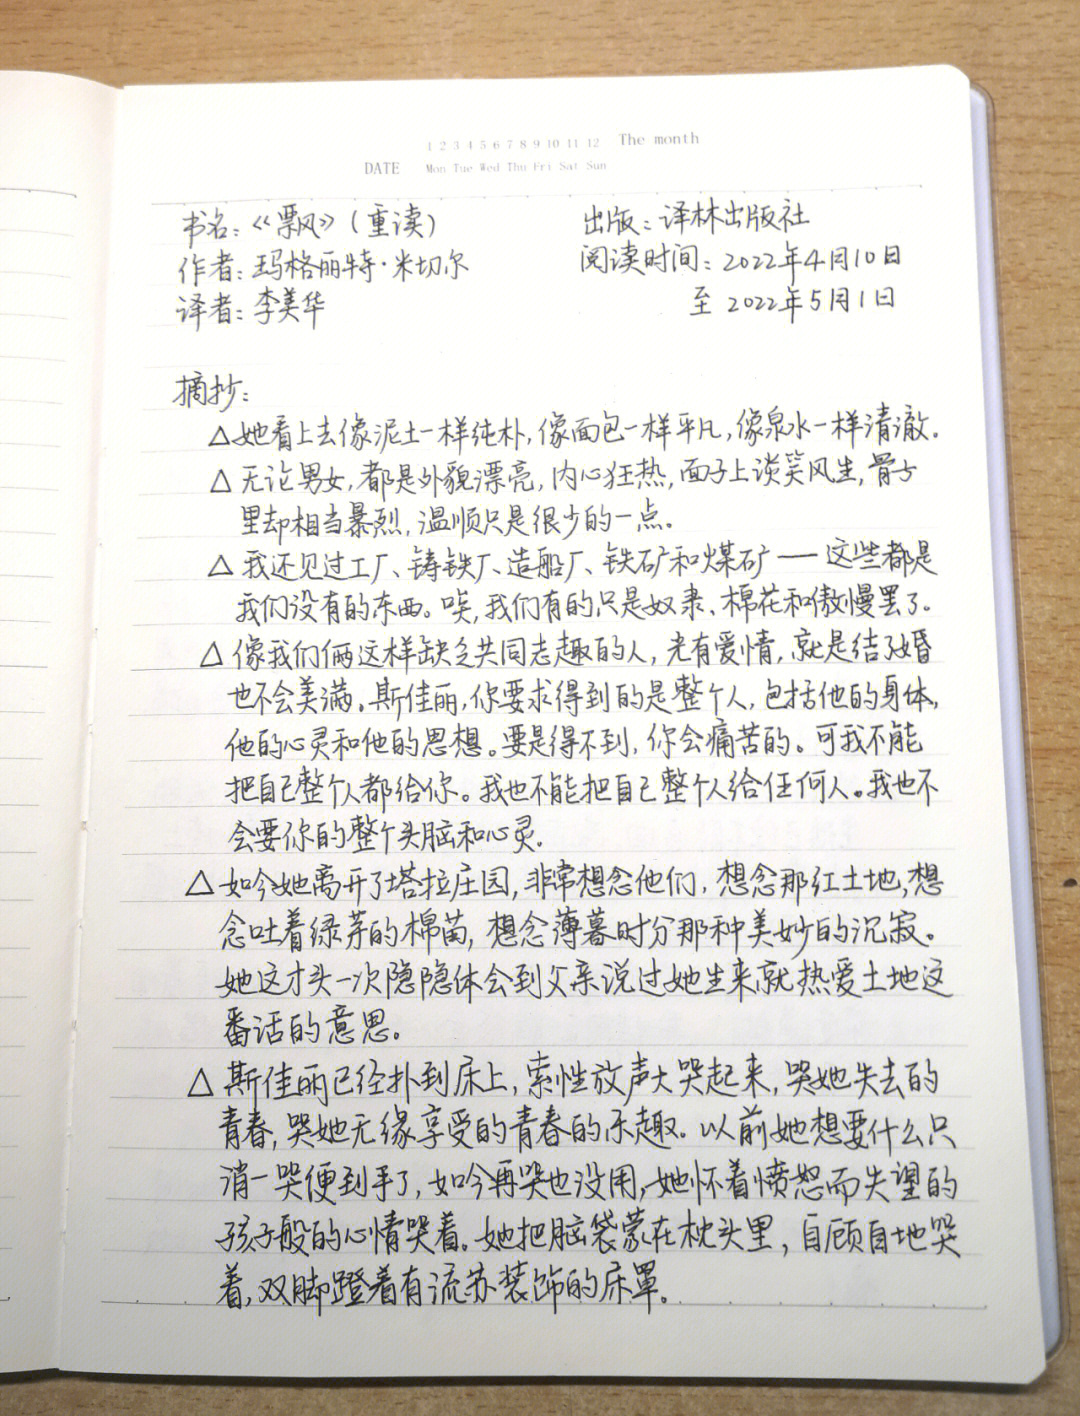 1 2 3 4 5 6 7 8 9 10 11 12 The month
DATE Mon Tue Wed Thu Fri Sat Sun
书名：《飘》（重读） 出版：译林出版社
作者：玛格丽特·米切尔 阅读时间：2022年4月10日
译者：李美华 至 2022年5月1日
摘抄：
△她看上去像泥土一样纯朴，像面包一样平凡，像泉水一样清澈。
△无论男女，都是外貌漂亮，内心狂热，面子上谈笑风生，骨子
里却相当暴烈，温顺只是很少的一点。
△我还见过工厂、铸铁厂、造船厂、铁矿和煤矿——这些都是
我们没有的东西。唉，我们有的只是奴隶、棉花和傲慢罢了。
△像我们俩这样缺乏共同志趣的人，光有爱情，就是结了婚
也不会美满。斯佳丽，你要求得到的是整个人，包括他的身体，
他的心灵和他的思想。要是得不到，你会痛苦的。可我不能
把自己整个人都给你。我也不能把自己整个人给任何人。我也不
会要你的整个头脑和心灵。
△如今她离开了塔拉庄园，非常想念他们，想念那红土地，想
念吐着绿芽的棉苗，想念薄暮时分那种美妙的沉寂。
她这才头一次隐隐体会到父亲说过她生来就热爱土地这
番话的意思。
△斯佳丽已经扑到床上，索性放声大哭起来，哭她失去的
青春，哭她无缘享受的青春的乐趣。以前她想要什么只
消一哭便到手了，如今再哭也没用，她怀着愤怒而失望的
孩子般的心情哭着。她把脑袋蒙在枕头里，自顾自地哭
着，双脚蹬着有流苏装饰的床罩。